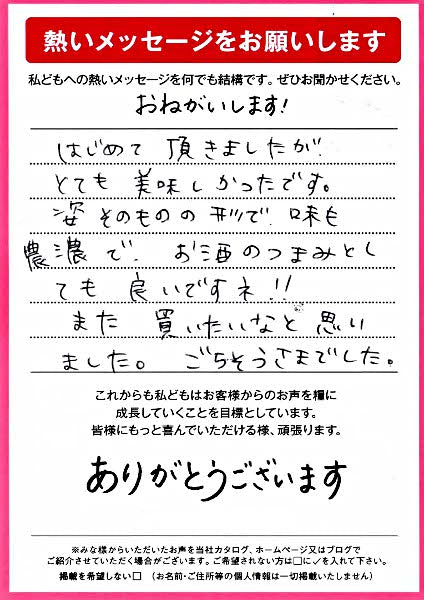 熱いメッセージをお願いします
私どもへの熱いメッセージを何でも結構です。ぜひお聞かせください。
おねがいします!
はじめて 頂きましたが、
とても 美味しかったです。
姿そのものの形で、味も
農濃で、お酒のつまみとし
ても 良いですネ!!
また 買いたいなと思い
ました。 ごちそうさまでした。
これからも私どもはお客様からのお声を糧に
成長していくことを目標としています。
皆様にもっと喜んでいただける様、頑張ります。
ありがとうございます
※みな様からいただいたお声を当社カタログ、ホームページ又はブログで
ご紹介させていただく場合がございます。ご希望されない方は□に✓を入れて下さい。
掲載を希望しない□ (お名前・ご住所等の個人情報は一切掲載いたしません)